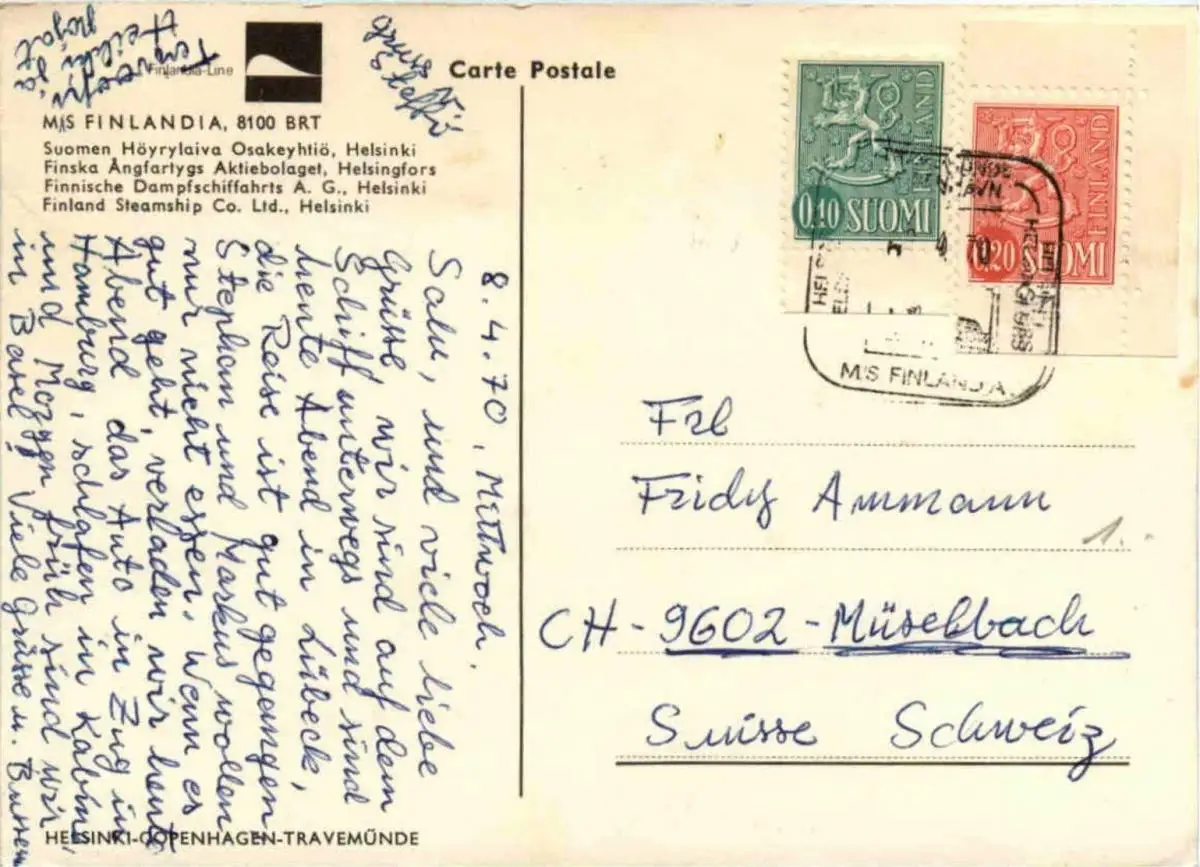 Finlandia-Line
Carte Postale
M/S FINLANDIA, 8100 BRT
Suomen Höyrylaiva Osakeyhtiö, Helsinki
Finska Ångfartygs Aktiebolaget, Helsingfors
Finnische Dampfschiffahrts A. G., Helsinki
Finland Steamship Co. Ltd., Helsinki
8.4.70, Mittwoch.
Salu, und viele liebe
Grüsse, wir sind auf dem
Schiff unterwegs und sind
heute Abend in Lübeck,
die Reise ist gut gegangen,
Stephan und Markus wollen
nur nicht essen. Wenn es
gut geht, verladen wir heute
Abend das Auto in Zug in
Hamburg, schlafen in Kabine,
und Morgen früh sind wir
in Basel! Viele Grüsse u. Bussen
Terveefri,
Heikki ja
pojat
Steffi
HELSINKI-COPENHAGEN-TRAVEMÜNDE
FINLAND
0,40 SUOMI
FINLAND
0,20 SUOMI
70
HELSINGFORS
M/S FINLANDIA
Frl
Fridy Ammann
1.
CH-9602-Müselbach
Suisse Schweiz